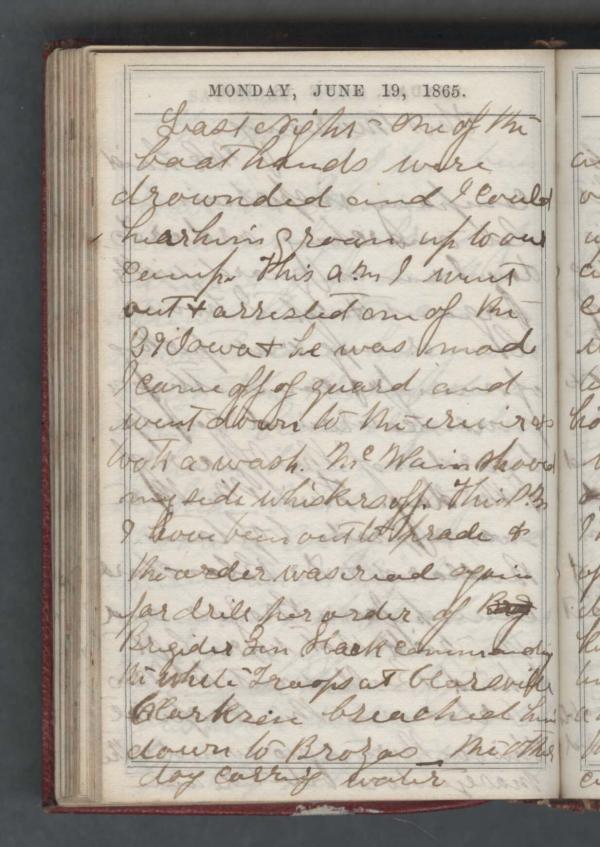 MONDAY, JUNE 19, 1865.
Last Night one of the
boat hands were
drownded and I could
hear him groan up to our
camp. This a.m I went
out & arrested one of the
29 Iowa & he was mad
I came off of guard and
went down to the river &
took a wash. McWain shaved
my side whiskers off. This P.M
I have been out to prade &
the order was read again
for drill per order of
Brigider Gen Slack commanding
the white Troops at Clarsville
Clarkson breached him
down to Brozas the other
day carrig water